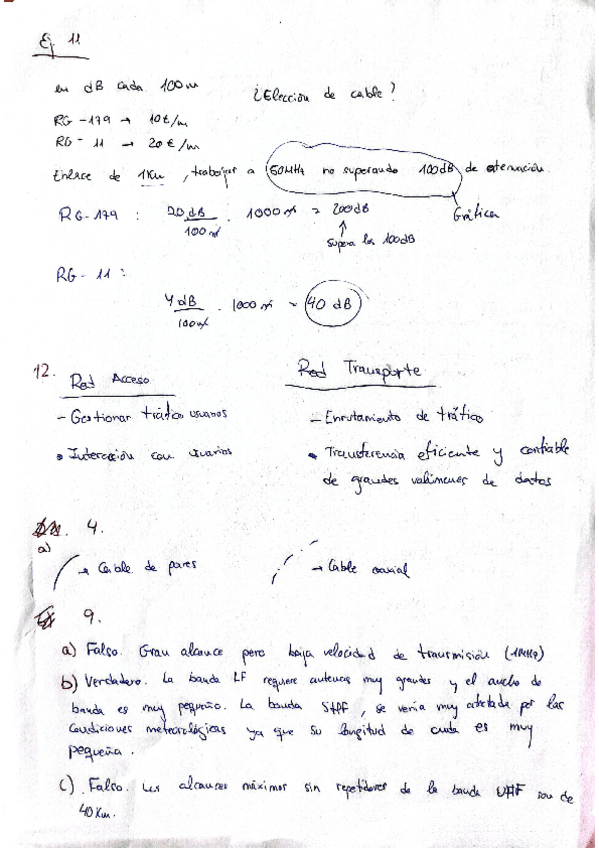 Ej. 11
en dB cada 100m ¿Elección de cable?
RG-179 → 10€/m
RG-11 → 20€/m
Enlace de 1Km, trabajar a 50MHz no superando 100dB de atenuación.
RG-179: 20 dB / 100 m · 1000 m = 200dB Gráfica
↑
supera los 100dB
RG-11:
4dB / 100m · 1000 m = 40 dB
12. Red Acceso Red Transporte
- Gestionar tráfico usuarios - Enrutamiento de tráfico
• Interacción con usuarios • Transferencia eficiente y confiable
de grandes volúmenes de datos
4.
a)
→ Cable de pares → Cable coaxial
9.
a) Falso. Gran alcance pero baja velocidad de transmisión (1MHz)
b) Verdadero. La banda LF requiere antenas muy grandes y el ancho de
banda es muy pequeño. La banda SHF, se vería muy afectada por las
condiciones meteorológicas ya que su longitud de onda es muy
pequeña.
c) Falso. Los alcances máximos sin repetidores de la banda UHF son de
40Km.